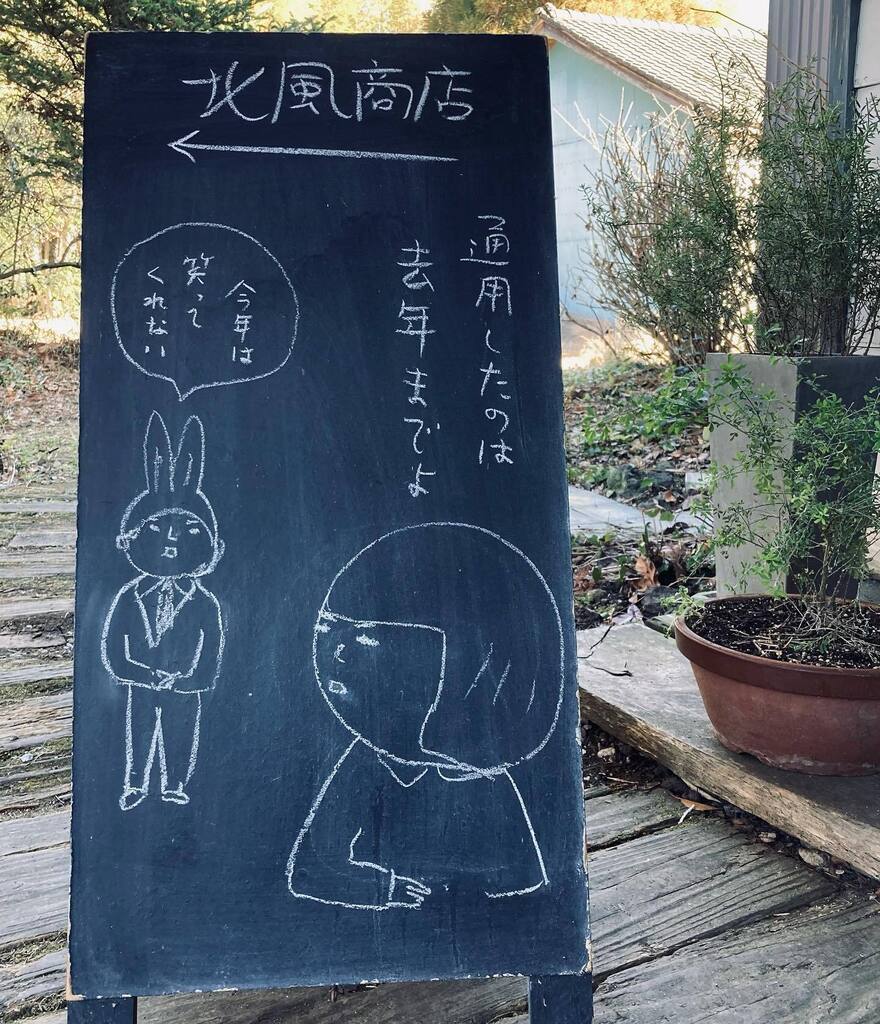 北風商店
通用したのは
去年までよ
今年は
笑って
くれない